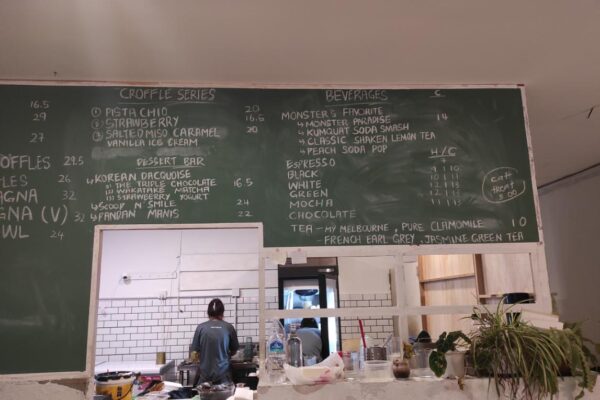 16.5
29
27
OFFLES 29.5
LES 26
AGNA 32
GNA (V) 32
WL 24
CROFFLE SERIES
① PISTACHIO 20
② STRAWBERRY 16.5
③ SALTED MISO CARAMEL 20
VANILLA ICE CREAM
DESSERT BAR
↳ KOREAN DACQUOISE
(I) THE TRIPLE CHOCOLATE 16.5
(II) WAKATAKE MATCHA
(III) STRAWBERRY YOGURT
↳ SCOOP N SMILE 24
↳ PANDAN MANIS 22
BEVERAGES C
MONSTER'S FAVORITE 14
↳ MONSTER PARADISE
↳ KUMQUAT SODA SMASH
↳ CLASSIC SHAKEN LEMON TEA
↳ PEACH SODA POP
H/C
ESPRESSO
BLACK
WHITE
GREEN
MOCHA
CHOCOLATE
TEA - MY MELBOURNE, PURE CLAMOMILE 10
- FRENCH EARL GREY, JASMINE GREEN TEA